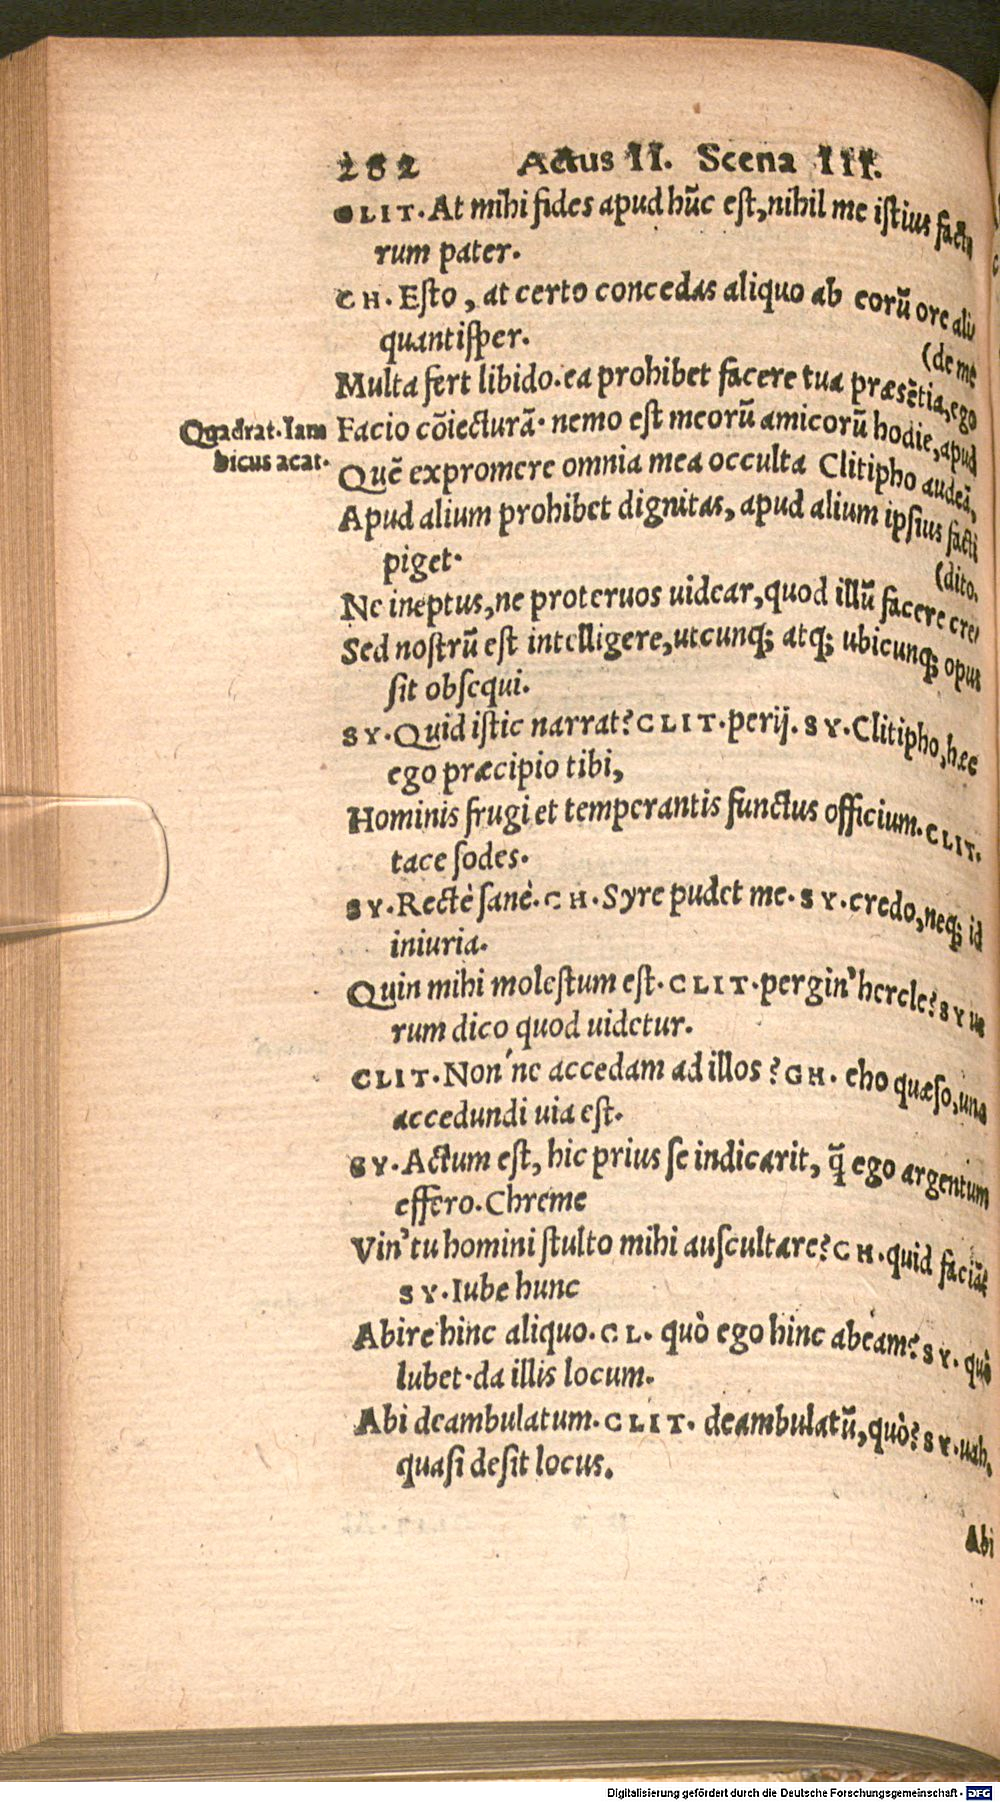 282 Actus II. Scena III.
CLIT. At mihi fides apud hūc est, nihil me istius facto
rum pater.
CH. Esto, at certo concedas aliquo ab eorū ore ali
quantisper.
(de me
Multa fert libido. ea prohibet facere tua præsētia, ego
Quadrat. Iam
bicus acat.
Facio cōiecturā. nemo est meorū amicorū hodie, apud
Quē expromere omnia mea occulta Clitipho audeā,
Apud alium prohibet dignitas, apud alium ipsius facti
piget.
(dito.
Ne ineptus, ne proteruos uidear, quod illū facere cre
Sed nostrū est intelligere, utcunq; atq; ubicunq; opus
sit obsequi.
SY. Quid istic narrat? CLIT. perij. SY. Clitipho, hæc
ego præcipio tibi,
Hominis frugi et temperantis functus officium. CLIT.
tace sodes.
SY. Rectè sanè. CH. Syre pudet me. SY. credo, neq; id
iniuria.
Quin mihi molestum est. CLIT. pergin' hercle? SY ue
rum dico quod uidetur.
CLIT. Non'ne accedam ad illos? GH. eho quæso, una
accedundi uia est.
SY. Actum est, hic prius se indicarit, q̄ ego argentum
effero. Chreme
Vin' tu homini stulto mihi auscultare? CH. quid faciā?
SY. Iube hunc
Abire hinc aliquo. CL. quò ego hinc abeam? SY. quò
lubet. da illis locum.
Abi deambulatum. CLIT. deambulatū, quò? SY. uah,
quasi desit locus.
Abi
Digitalisierung gefördert durch die Deutsche Forschungsgemeinschaft - DFG